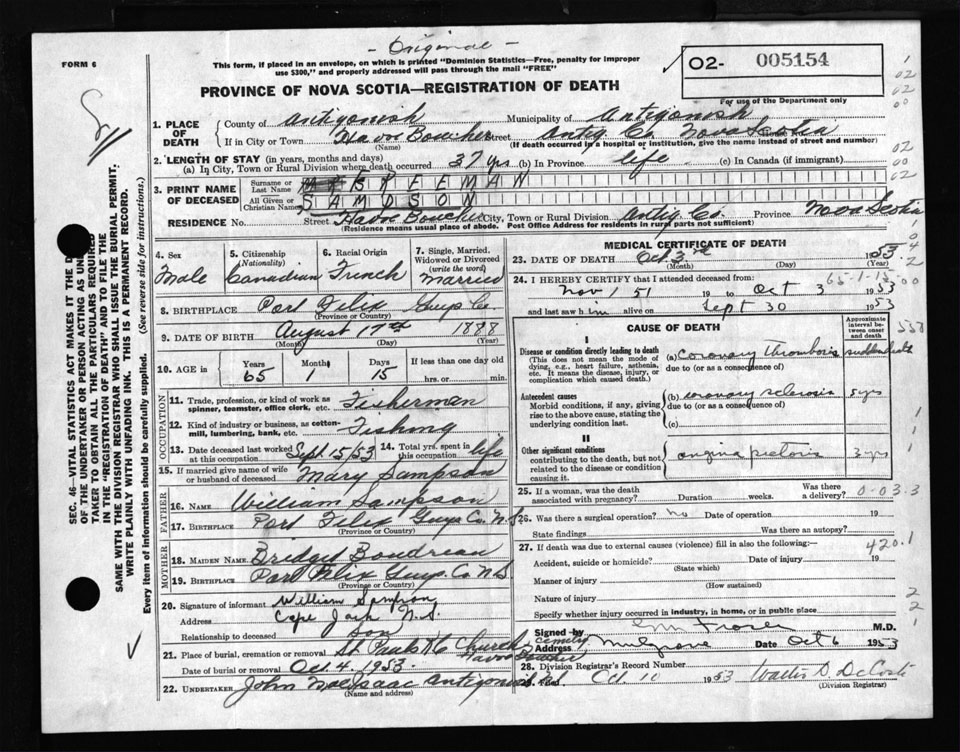 - Original -
FORM 6
This form, if placed in an envelope, on which is printed "Dominion Statistics—Free, penalty for improper
use $300," and properly addressed will pass through the mail "FREE"
PROVINCE OF NOVA SCOTIA—REGISTRATION OF DEATH
O2- 005154
For use of the Department only
1. PLACE OF DEATH
County of Antigonish Municipality of Antigonish
If in City or Town Havre Boucher Street Antig. Co Nova Scotia
(Name) (If death occurred in a hospital or institution, give the name instead of street and number)
2. LENGTH OF STAY (in years, months and days)
(a) In City, Town or Rural Division where death occurred 37 yrs (b) In Province life (c) In Canada (if immigrant)
3. PRINT NAME OF DECEASED
Surname or Last Name FREEMAN
All Given or Christian Names SAMPSON
RESIDENCE No. Street Havre Boucher City, Town or Rural Division Antig. Co. Province Nova Scotia
(Residence means usual place of abode. Post Office Address for residents in rural parts not sufficient)
4. Sex
Male
5. Citizenship (Nationality)
Canadian
6. Racial Origin
French
7. Single, Married, Widowed or Divorced (write the word)
Married
8. BIRTHPLACE Port Felix Guys Co.
(Province or Country)
9. DATE OF BIRTH August 17th 1888
(Month) (Day) (Year)
10. AGE in Years 65 Months 1 Days 15 If less than one day old
hrs. or min.
OCCUPATION
11. Trade, profession, or kind of work as spinner, teamster, office clerk, etc. Fisherman
12. Kind of industry or business, as cotton-mill, lumbering, bank, etc. Fishing
13. Date deceased last worked at this occupation Sept 15/53 14. Total yrs. spent in this occupation life
15. If married give name of wife or husband of deceased Mary Sampson
FATHER
16. NAME William Sampson
17. BIRTHPLACE Port Felix Guys Co. N.S
(Province or Country)
MOTHER
18. MAIDEN NAME Bridget Boudreau
19. BIRTHPLACE Port Felix Guys. Co. N.S
(Province or Country)
20. Signature of informant William Sampson
Address Cape Jack N.S.
Relationship to deceased son
21. Place of burial, cremation or removal St Pauls RC Church cemetery Havre Boucher
Date of burial or removal Oct. 4. 1953.
22. UNDERTAKER John MacIsaac Antigonish N.S.
(Name and address)
MEDICAL CERTIFICATE OF DEATH
23. DATE OF DEATH Oct 3rd 1953
(Month) (Day) (Year)
24. I HEREBY CERTIFY that I attended deceased from:
65-1-15
Nov 1 51 19 to Oct 3 1953
and last saw him alive on Sept 30 1953
CAUSE OF DEATH
Approximate interval between onset and death
I
Disease or condition directly leading to death
(This does not mean the mode of dying, e.g., heart failure, asthenia, etc. It means the disease, injury, or complication which caused death.)
(a) Coronary Thrombosis sudden death
due to (or as a consequence of)
Antecedent causes
Morbid conditions, if any, giving rise to the above cause, stating the underlying condition last.
(b) coronary sclerosis 5 yrs
due to (or as a consequence of)
(c)
II
Other significant conditions
contributing to the death, but not related to the disease or condition causing it.
angina pectoris 3 yrs
25. If a woman, was the death associated with pregnancy? Duration weeks. Was there a delivery?
0-03.3
26. Was there a surgical operation? no Date of operation 19
State findings Was there an autopsy?
420.1
27. If death was due to external causes (violence) fill in also the following:—
Accident, suicide or homicide? Date of injury 19
(State which)
Manner of injury
(How sustained)
Nature of injury
Specify whether injury occurred in industry, in home, or in public place
Signed by M.D.
Address Mulgrave Date Oct 6 1953
28. Division Registrar's Record Number
Filed Oct. 10 1953 Walter D. DeCoste
(Division Registrar)
SEC. 46—VITAL STATISTICS ACT MAKES IT THE
OF THE UNDERTAKER OR PERSON ACTING AS
TAKER TO OBTAIN ALL THE PARTICULARS REQUIRED
IN THE "REGISTRATION OF DEATH" AND TO FILE THE
SAME WITH THE DIVISION REGISTRAR WHO SHALL ISSUE THE BURIAL PERMIT.
WRITE PLAINLY WITH UNFADING INK. THIS IS A PERMANENT RECORD.
Every item of Information should be carefully supplied. (See reverse side for instructions.)